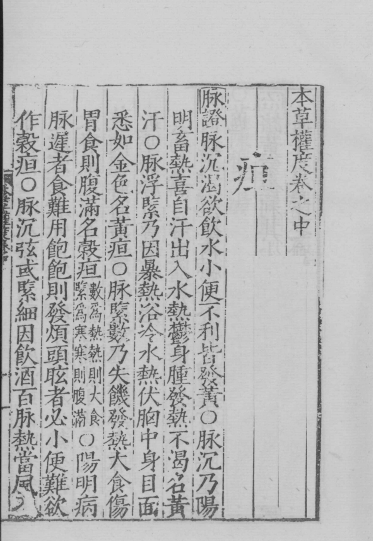 本草權度卷之中
疸
脉證脉沉渴欲飲水小便不利皆發黃○脉沉乃陽
明畜熱喜自汗出入水熱鬱身腫發熱不渴名黃
汗○脉浮緊乃因暴熱浴冷水熱伏胸中身目面
悉如金色名黃疸○脉緊數乃失饑發熱大食傷
胃食則腹滿名穀疸數爲熱熱則大食緊爲寒寒則腹滿○陽明病
脉遲者食難用飽飽則發煩頭眩者必小便難欲
作穀疸○脉沉弦或緊細因飲酒百脉熱當風入